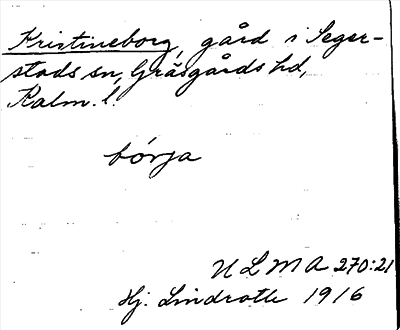 Kristineborg, gård i Seger-
stads sn, Gräsgårds hd,
Kalm. l.
bórja
ULMA 270:21
Hj. Lindroth 1916